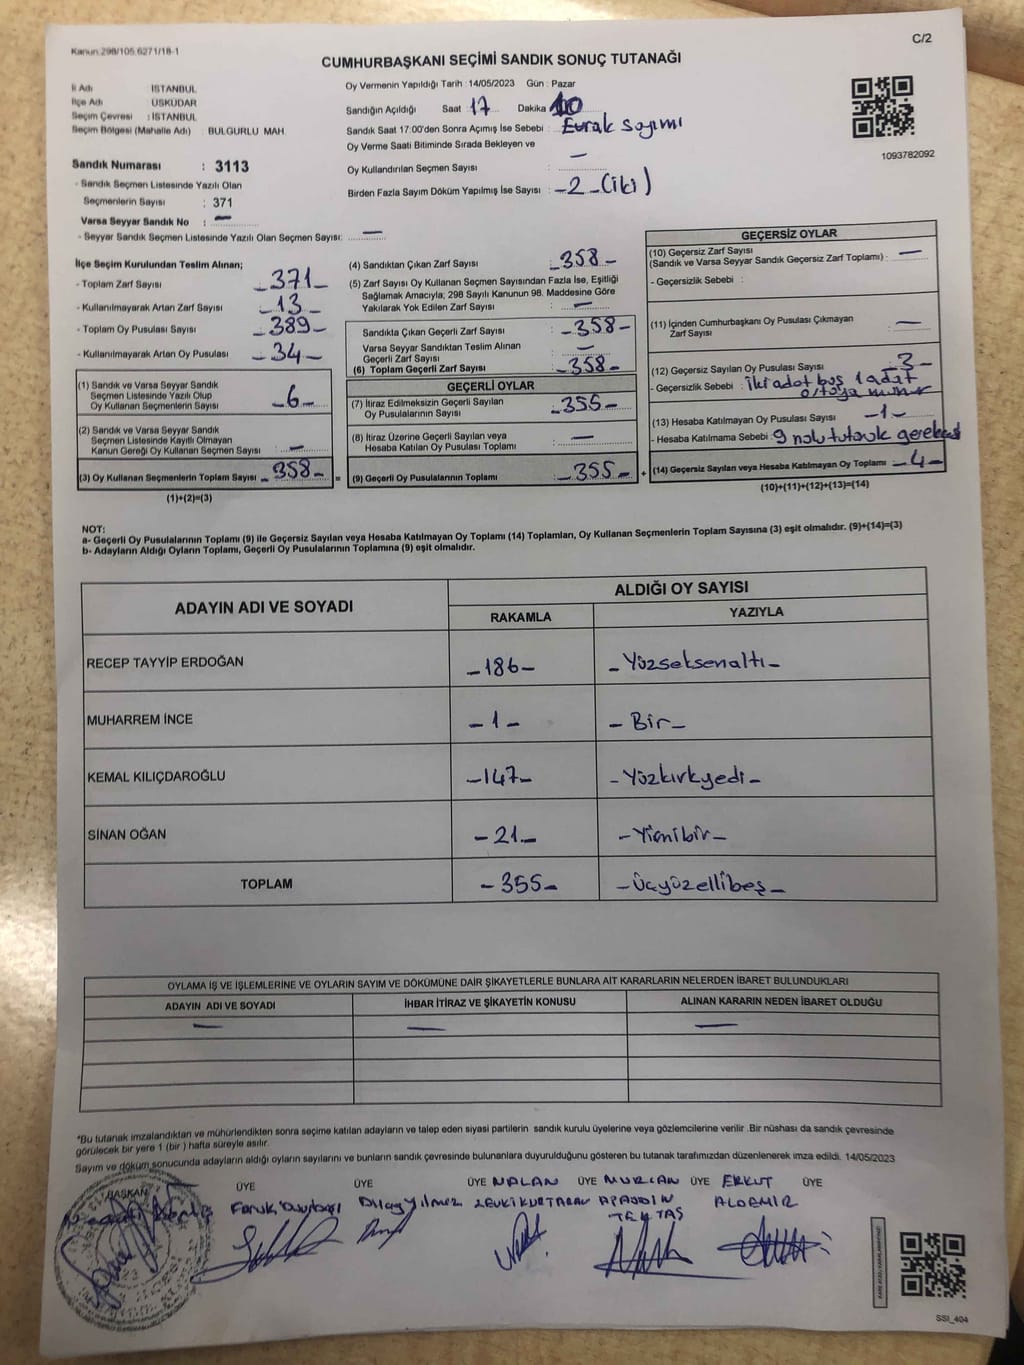 Kanun:298/105,6271/18-1
C/2
CUMHURBAŞKANI SEÇİMİ SANDIK SONUÇ TUTANAĞI
İl Adı : İSTANBUL
İlçe Adı : ÜSKÜDAR
Seçim Çevresi : İSTANBUL
Seçim Bölgesi (Mahalle Adı) : BULGURLU MAH.
Sandık Numarası : 3113
- Sandık Seçmen Listesinde Yazılı Olan
Seçmenlerin Sayısı : 371
Varsa Seyyar Sandık No : —
- Seyyar Sandık Seçmen Listesinde Yazılı Olan Seçmen Sayısı: —
Oy Vermenin Yapıldığı Tarih : 14/05/2023 Gün : Pazar
Sandığın Açıldığı Saat 17 Dakika 10
Sandık Saat 17:00'den Sonra Açımış İse Sebebi : Evrak sayımı
Oy Verme Saati Bitiminde Sırada Bekleyen ve
Oy Kullandırılan Seçmen Sayısı : —
Birden Fazla Sayım Döküm Yapılmış İse Sayısı : -2-(iki)
1093782092
İlçe Seçim Kurulundan Teslim Alınan;
- Toplam Zarf Sayısı -371-
- Kullanılmayarak Artan Zarf Sayısı -13-
- Toplam Oy Pusulası Sayısı -389-
- Kullanılmayarak Artan Oy Pusulası -34-
(1) Sandık ve Varsa Seyyar Sandık
Seçmen Listesinde Yazılı Olup
Oy Kullanan Seçmenlerin Sayısı -6-
(2) Sandık ve Varsa Seyyar Sandık
Seçmen Listesinde Kayıtlı Olmayan
Kanun Gereği Oy Kullanan Seçmen Sayısı —
(3) Oy Kullanan Seçmenlerin Toplam Sayısı -358-
(1)+(2)=(3)
(4) Sandıktan Çıkan Zarf Sayısı -358-
(5) Zarf Sayısı Oy Kullanan Seçmen Sayısından Fazla İse, Eşitliği
Sağlamak Amacıyla; 298 Sayılı Kanunun 98. Maddesine Göre
Yakılarak Yok Edilen Zarf Sayısı —
Sandıkta Çıkan Geçerli Zarf Sayısı -358-
Varsa Seyyar Sandıktan Teslim Alınan
Geçerli Zarf Sayısı —
(6) Toplam Geçerli Zarf Sayısı -358-
GEÇERLİ OYLAR
(7) İtiraz Edilmeksizin Geçerli Sayılan
Oy Pusulalarının Sayısı -355-
(8) İtiraz Üzerine Geçerli Sayılan veya
Hesaba Katılan Oy Pusulası Toplamı —
(9) Geçerli Oy Pusulalarının Toplamı -355-
GEÇERSİZ OYLAR
(10) Geçersiz Zarf Sayısı
(Sandık ve Varsa Seyyar Sandık Geçersiz Zarf Toplamı) - —
- Geçersizlik Sebebi :
(11) İçinden Cumhurbaşkanı Oy Pusulası Çıkmayan
Zarf Sayısı —
(12) Geçersiz Sayılan Oy Pusulası Sayısı -3-
- Geçersizlik Sebebi : İki adet boş 1 adet
ortaya mühür
(13) Hesaba Katılmayan Oy Pusulası Sayısı -1-
- Hesaba Katılmama Sebebi : 9 nolu tutanak gerekçesi
(14) Geçersiz Sayılan veya Hesaba Katılmayan Oy Toplamı -4-
(10)+(11)+(12)+(13)=(14)
NOT:
a- Geçerli Oy Pusulalarının Toplamı (9) ile Geçersiz Sayılan veya Hesaba Katılmayan Oy Toplamı (14) Toplamları, Oy Kullanan Seçmenlerin Toplam Sayısına (3) eşit olmalıdır. (9)+(14)=(3)
b- Adayların Aldığı Oyların Toplamı, Geçerli Oy Pusulalarının Toplamına (9) eşit olmalıdır.
ADAYIN ADI VE SOYADI
ALDIĞI OY SAYISI
RAKAMLA YAZIYLA
RECEP TAYYİP ERDOĞAN -186- -Yüzseksenaltı-
MUHARREM İNCE -1- -Bir-
KEMAL KILIÇDAROĞLU -147- -Yüzkırkyedi-
SİNAN OĞAN -21- -Yirmibir-
TOPLAM -355- -Üçyüzellibeş-
OYLAMA İŞ VE İŞLEMLERİNE VE OYLARIN SAYIM VE DÖKÜMÜNE DAİR ŞİKAYETLERLE BUNLARA AİT KARARLARIN NELERDEN İBARET BULUNDUKLARI
ADAYIN ADI VE SOYADI İHBAR İTİRAZ VE ŞİKAYETİN KONUSU ALINAN KARARIN NEDEN İBARET OLDUĞU
— — —
*Bu tutanak imzalandıktan ve mühürlendikten sonra seçime katılan adayların ve talep eden siyasi partilerin sandık kurulu üyelerine veya gözlemcilerine verilir .Bir nüshası da sandık çevresinde
görülecek bir yere 1 (bir ) hafta süreyle asılır.
Sayım ve döküm sonucunda adayların aldığı oyların sayılarını ve bunların sandık çevresinde bulunanlara duyurulduğunu gösteren bu tutanak tarafımızdan düzenlenerek imza edildi. 14/05/2023
BAŞKAN ÜYE ÜYE ÜYE ÜYE ÜYE ÜYE
NALAN NURCAN ERKUT
Dilay Yılmaz ZEVKİKURTARAN APAYDIN ALDEMİR
TEKTAŞ
SSI_404